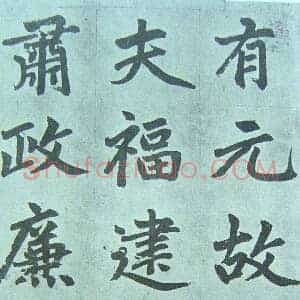 有元故
夫福建
肅政廉
shufazidao.com